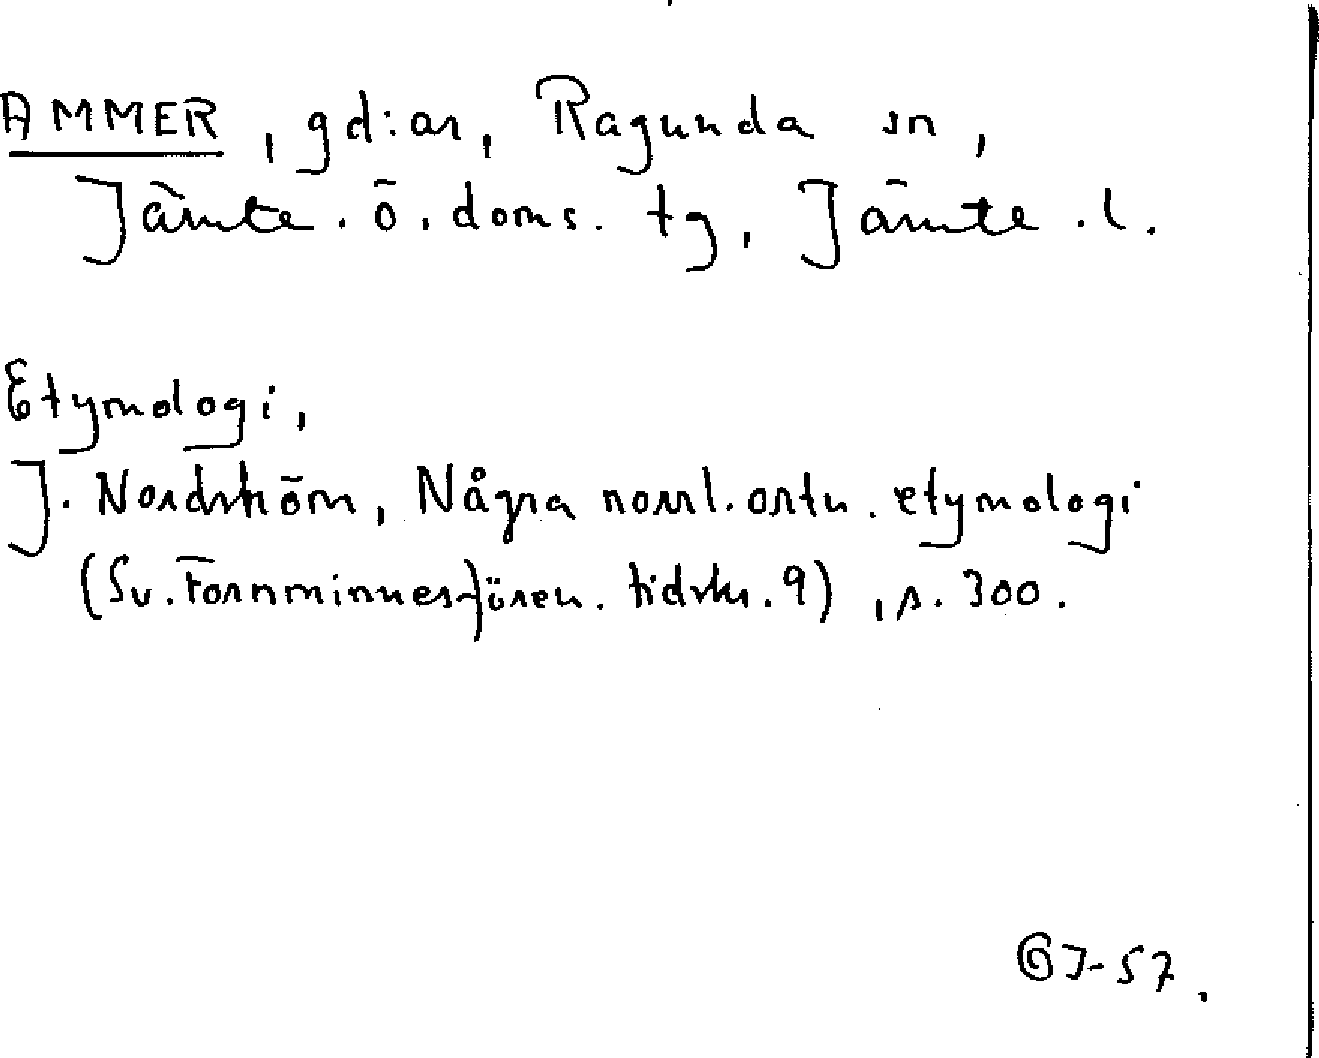 AMMER, gd:ar, Ragunda sn,
Jämte. ö. doms. tg, Jämte. l.
Etymologi,
J. Nordström, Några norrl. ortn. etymologi
(Sv. Fornminnesfören. tidskr. 9), s. 300.
GJ-57.